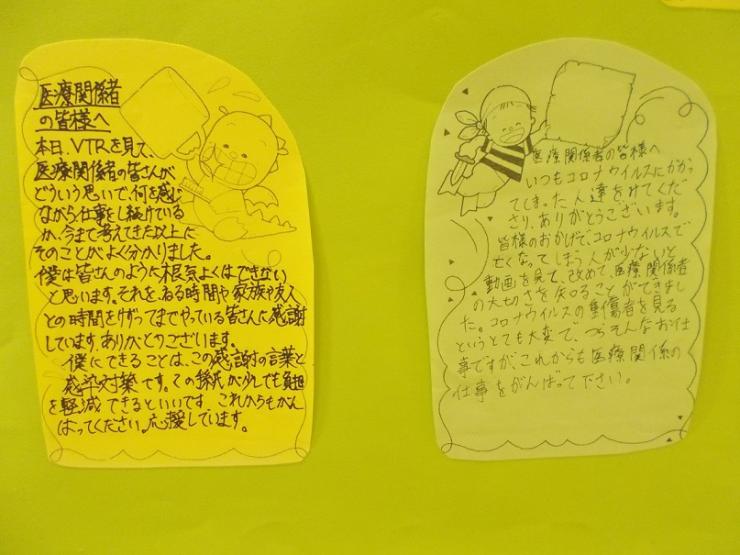 医療関係者
の皆様へ
本日、VTRを見て、
医療関係者の皆さんが
どういう思いで、何を感じ
ながら仕事をし続けている
か、今まで考えてきた以上に
そのことがよく分かりました。
僕は皆さんのように根気よくはできない
と思います。それを、ねる時間や家族や友人
との時間をけずってまでやっている皆さんに感謝
しています。ありがとうございます。
僕にできることは、この感謝の言葉と
感染対策です。この 少しでも負担
を軽減できるといいです。これからもがん
ばってください。応援しています。
医療関係者の皆様へ
いつもコロナウイルスにかかっ
てしまった人達をみてくだ
さり、ありがとうございます。
皆様のおかげで、コロナウイルスで
亡くなってしまう人が少ないと
動画を見て、改めて、医療関係者
の大切さを知ることができまし
た。コロナウイルスの重傷者を見る
というとても大変で、つらそんなお仕
事ですが、これからも医療関係の
仕事をがんばって下さい。